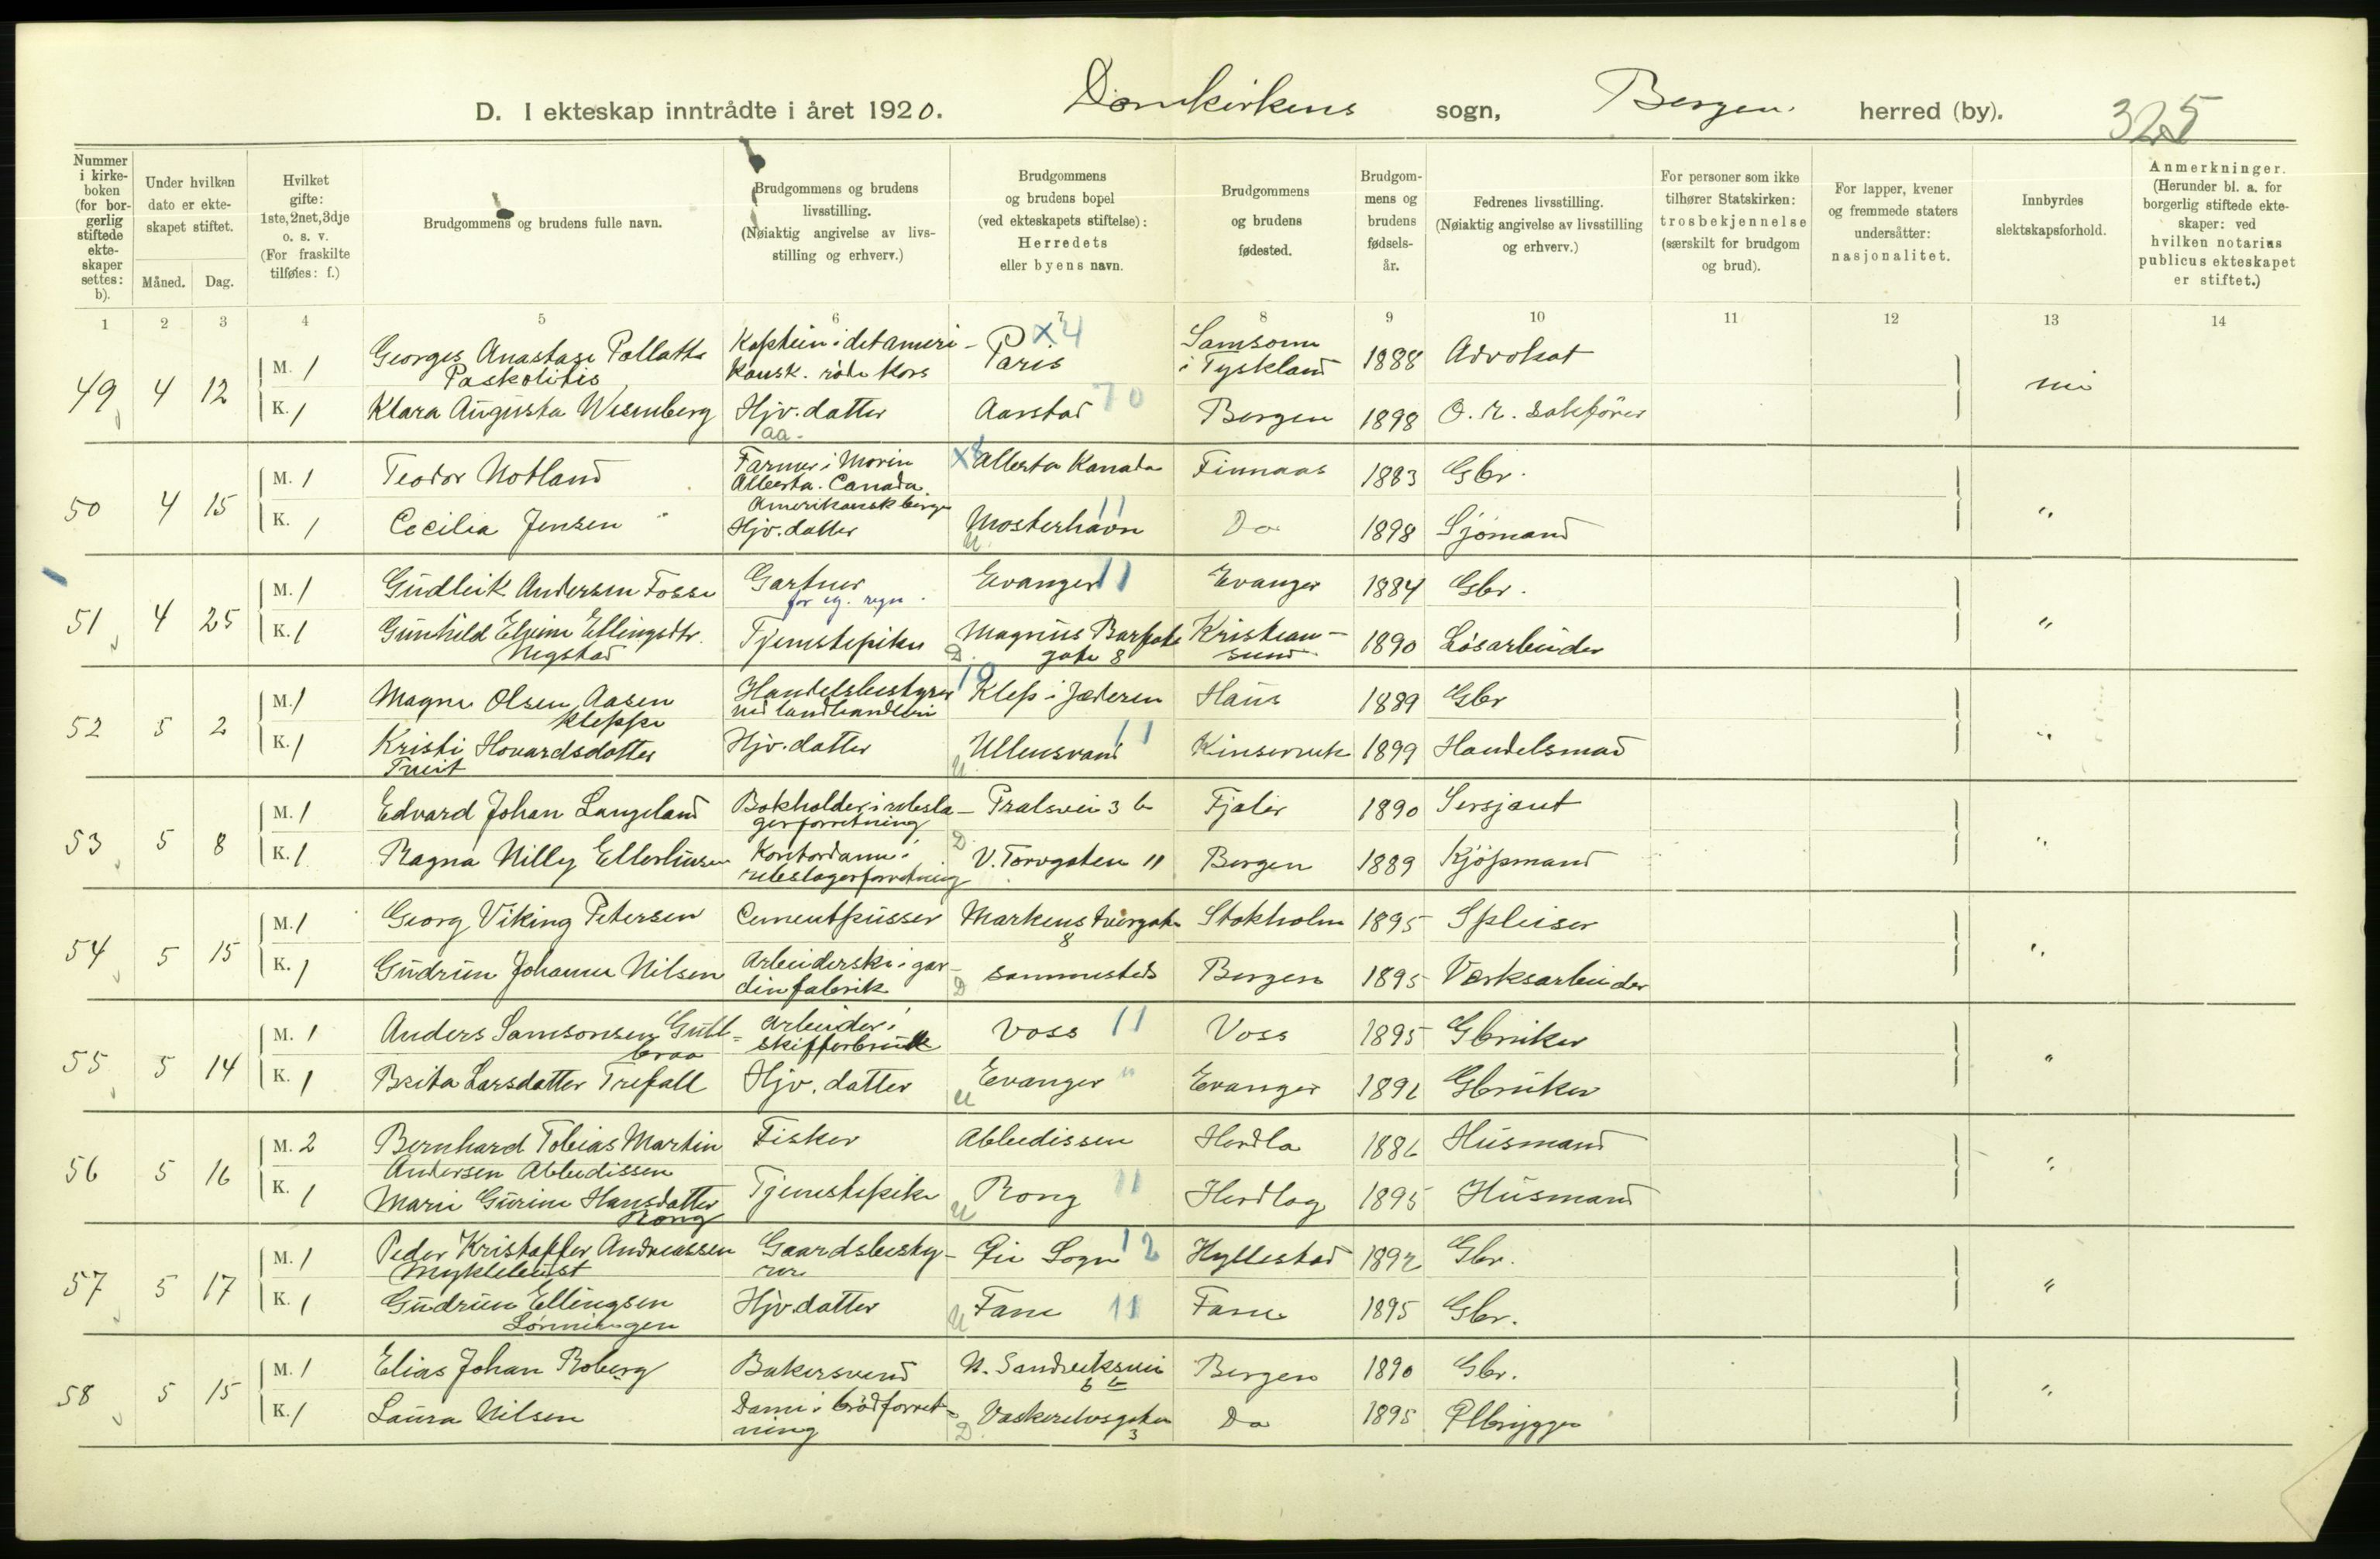 D. I ekteskap inntrådte i året 1920. Domkirkens sogn, Bergen. herred (by). 325
Nummer i kirke-boken (for bor-gerlig stiftede ekte-skaper settes: b).
Under hvilken dato er ekte-skapet stiftet.
Måned. Dag.
Hvilket gifte: 1ste, 2net, 3dje o. s. v. (For fraskilte tilføies: f.)
Brudgommens og brudens fulle navn.
Brudgommens og brudens livsstilling. (Nøiaktig angivelse av livs-stilling og erhverv.)
Brudgommens og brudens bopel (ved ekteskapets stiftelse): Herredets eller byens navn.
Brudgommens og brudens fødested.
Brudgom-mens og brudens fødsels-år.
Fedrenes livsstilling. (Nøiaktig angivelse av livsstilling og erhverv.)
For personer som ikke tilhører Statskirken: trosbekjennelse (særskilt for brudgom og brud).
For lapper, kvener og fremmede staters undersåtter: nasjonalitet.
Innbyrdes slektskapsforhold.
Anmerkninger. (Herunder bl. a. for borgerlig stiftede ekte-skaper: ved hvilken notarius publicus ekteskapet er stiftet.)
1 2 3 4 5 6 7 8 9 10 11 12 13 14
49 4 12 M. 1 Georges Anastase Pallatta Paskolitis Kaptein i det ameri-kansk. röde kors Paris X4 Samsoun i Tyskland 1888 Advokat
K. 1 Klara Augusta Wesenberg Hjv. datter aa. Aarstad 70 Bergen 1898 O. r. sakförer nei
50 4 15 M. 1 Teodor Notland Farmer i Morin Alberta. Canada Amerikansk borger X8 Alberta Kanada Finnaas 1883 Gbr.
K. 1 Cecilia Jensen Hjv. datter Mosterhavn 11 U Do 1898 Sjömand "
51 4 25 M. 1 Gudleik Andersen Fosse Gartner for eg. regn. Evanger 11 Evanger 1884 Gbr.
K. 1 Gunhild Elvine Ellingsdtr. Megstad Tjenstepike Magnus Barfots gate 8 D. Kristian-sund 1890 Lösarbeider "
52 5 2 M. 1 Magne Olsen Aasen Kleppe Handelsbestyrer ved landhandleri 10 Klep i Jæderen Haus 1889 Gbr
K. 1 Kristi Hovardsdatter Tveit Hjv. datter Ullensvand 11 U Kinservik 1899 Handelsmand "
53 5 8 M. 1 Edvard Johan Langeland Bokholder i rebsla-gerforretning Pralsvei 3 b Fjaler 1890 Sersjant
K. 1 Ragna Nilly Ellerhusen Kontordame i rebslagerforretning D. V. Torvgaten 11 Bergen 1889 Kjöpmand "
54 5 15 M. 1 Georg Viking Petersen Cementpusser Markens tvergate 8 Stokholm 1895 Spleiser
K. 1 Gudrun Johanne Nilsen Arbeiderske i gar-dinfabrik D sammesteds Bergen 1895 Verksarbeider "
55 5 14 M. 1 Anders Samsonsen Gull-braa Arbeider i skifferbrudd Voss 11 Voss 1895 Gbruker
K. 1 Brita Larsdatter Trefall Hjv. datter U Evanger " Evanger 1892 Gbruker "
56 5 16 M. 2 Bernhard Tobias Martin Andersen Abbedissen Fisker Abbedissen Herdla 1886 Husmand
K. 1 Marie Gurine Hansdatter Rong Tjenstepike U Rong 11 Herdla 1895 Husmand "
57 5 17 M. 1 Peder Kristoffer Andreassen Myklebust Gaardsbesty-rer Sogn 12 Hyllestad 1892 Gbr.
K. 1 Gudrun Ellingsen Lönningen Hjv. datter U Fane 11 Fane 1895 Gbr. "
58 5 15 M. 1 Elias Johan Roberg Bakersvend N. Sandviksvei 6 b Bergen 1890 Gbr.
K. 1 Laura Nilsen Dame i brödforret-ning D. Vaskerelvsgaten 3 Do 1895 Ölbrygger "